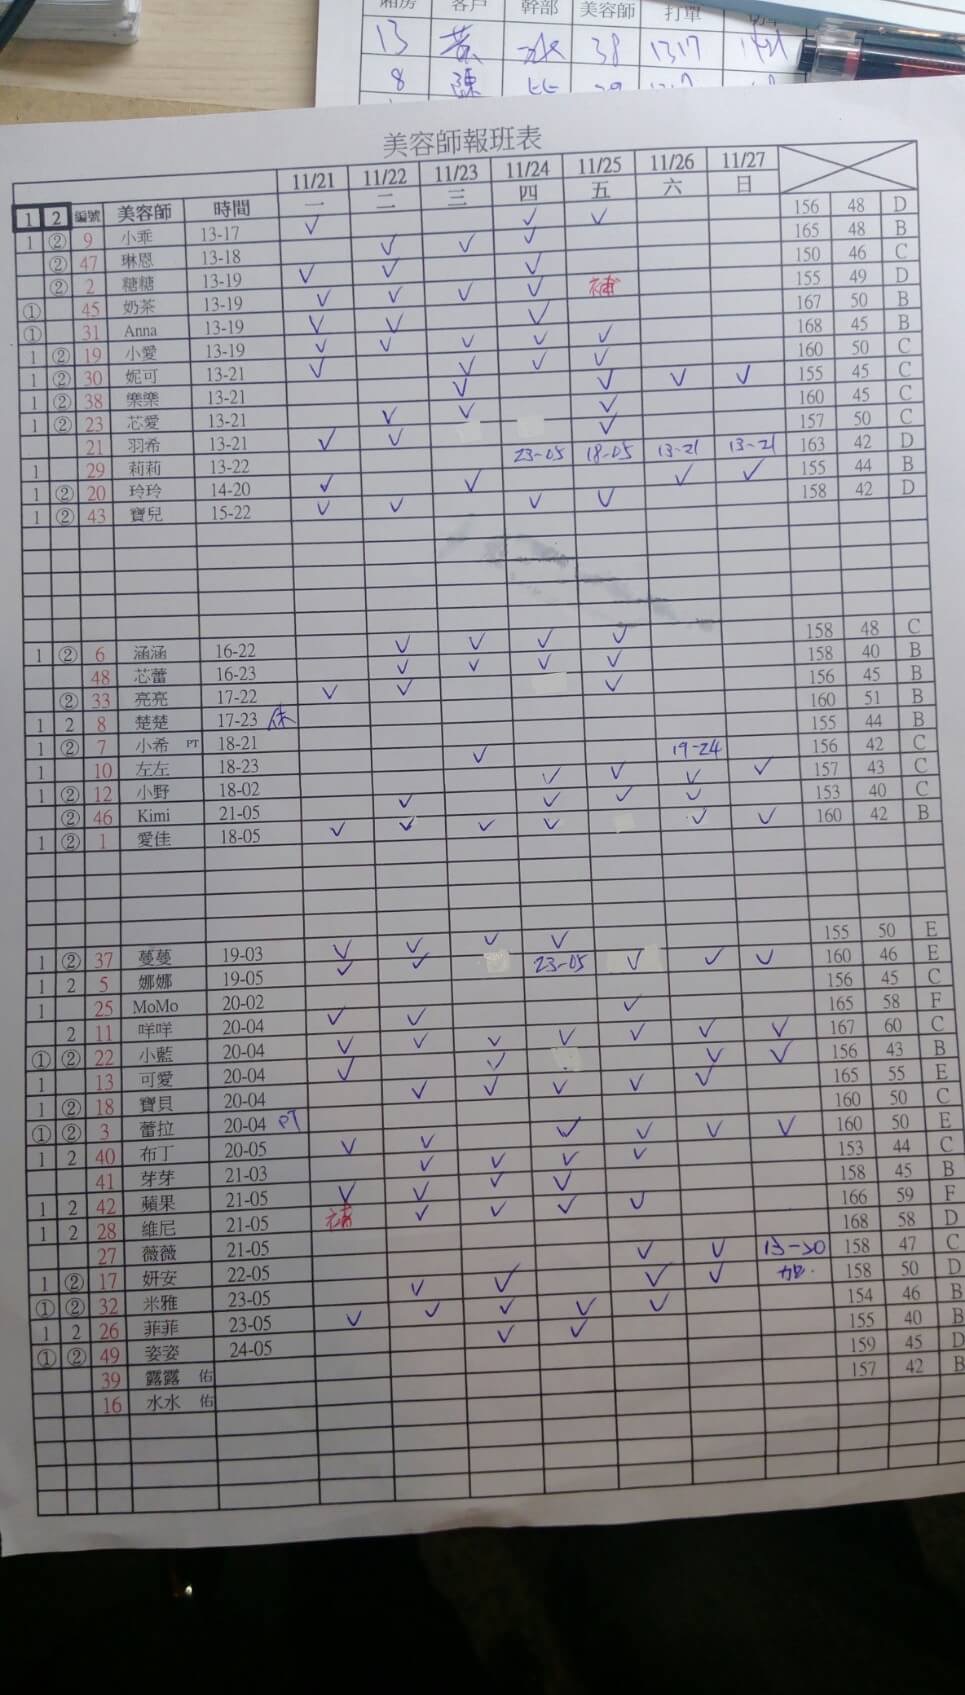 廂房 客戶 幹部 美容師 打單
13 黃 冰 38 1317
8 陳 比
美容師報班表
11/21 11/22 11/23 11/24 11/25 11/26 11/27
1 2 編號 美容師 時間 一 二 三 四 五 六 日
1 ② 9 小乖 13-17 ✓ ✓ ✓ 156 48 D
② 47 琳恩 13-18 ✓ ✓ ✓ 165 48 B
② 2 糖糖 13-19 ✓ ✓ ✓ 150 46 C
① 45 奶茶 13-19 ✓ ✓ ✓ ✓ 補 155 49 D
① 31 Anna 13-19 ✓ ✓ ✓ 167 50 B
1 ② 19 小愛 13-19 ✓ ✓ ✓ ✓ ✓ 168 45 B
1 ② 30 妮可 13-21 ✓ ✓ ✓ ✓ 160 50 C
1 ② 38 樂樂 13-21 ✓ ✓ ✓ ✓ 155 45 C
1 ② 23 芯愛 13-21 ✓ ✓ ✓ 160 45 C
21 羽希 13-21 ✓ ✓ ✓ 157 50 C
1 29 莉莉 13-22 23-05 18-05 13-21 13-21 163 42 D
1 ② 20 玲玲 14-20 ✓ ✓ ✓ ✓ 155 44 B
1 ② 43 寶兒 15-22 ✓ ✓ ✓ ✓ 158 42 D
1 ② 6 涵涵 16-22 ✓ ✓ ✓ ✓ 158 48 C
48 芯蕾 16-23 ✓ ✓ ✓ ✓ 158 40 B
② 33 亮亮 17-22 ✓ ✓ ✓ 156 45 B
1 2 8 楚楚 17-23 休 160 51 B
1 ② 7 小希 PT 18-21 155 44 B
1 10 左左 18-23 ✓ 19-24 156 42 C
1 ② 12 小野 18-02 ✓ ✓ ✓ ✓ 157 43 C
② 46 Kimi 21-05 ✓ ✓ ✓ ✓ 153 40 C
1 ② 1 愛佳 18-05 ✓ ✓ ✓ ✓ ✓ ✓ 160 42 B
1 ② 37 蔓蔓 19-03 ✓ ✓ ✓ ✓ 155 50 E
1 2 5 娜娜 19-05 ✓ ✓ 23-05 ✓ ✓ ✓ 160 46 E
1 25 MoMo 20-02 156 45 C
2 11 咩咩 20-04 ✓ ✓ ✓ 165 58 F
① ② 22 小藍 20-04 ✓ ✓ ✓ ✓ ✓ ✓ ✓ 167 60 C
1 13 可愛 20-04 ✓ ✓ ✓ ✓ 156 43 B
1 ② 18 寶貝 20-04 ✓ ✓ ✓ ✓ ✓ 165 55 E
① ② 3 蕾拉 20-04 PT 160 50 C
1 2 40 布丁 20-05 ✓ ✓ ✓ ✓ ✓ ✓ 160 50 E
41 芽芽 21-03 ✓ ✓ ✓ ✓ 153 44 C
1 2 42 蘋果 21-05 ✓ ✓ ✓ ✓ 158 45 B
1 2 28 維尼 21-05 補 ✓ ✓ ✓ ✓ 166 59 F
27 薇薇 21-05 168 58 D
1 ② 17 妍安 22-05 ✓ ✓ 13-20 158 47 C
① ② 32 米雅 23-05 ✓ ✓ ✓ ✓ 加. 158 50 D
1 2 26 菲菲 23-05 ✓ ✓ ✓ ✓ ✓ 154 46 B
① ② 49 姿姿 24-05 ✓ ✓ 155 40 B
39 露露 佑 159 45 D
16 水水 佑 157 42 B